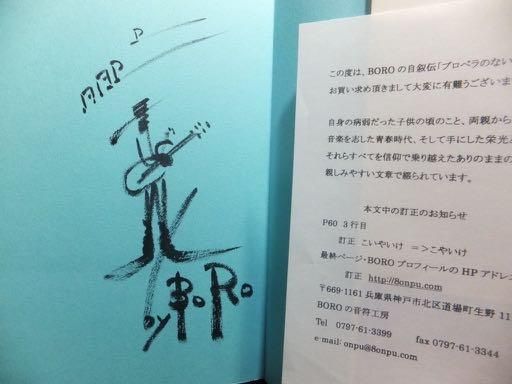 by BORO
この度は、BOROの自叙伝「プロペラのない
お買い求め頂きまして大変に有難うございま
自身の病弱だった子供の頃のこと、両親から
音楽を志した青春時代、そして手にした栄光と
それらすべてを信仰で乗り越えたありのままの
親しみやすい文章で綴られています。
本文中の訂正のお知らせ
P60 3行目
訂正 こいやいけ =>こやいけ
最終ページ・BOROプロフィールのHPアドレ
訂正 http://8onpu.com
〒669-1161 兵庫県神戸市北区道場町生野11
BOROの音符工房
Tel 0797-61-3399 fax 0797-61-3344
e-mail: onpu@8onpu.com